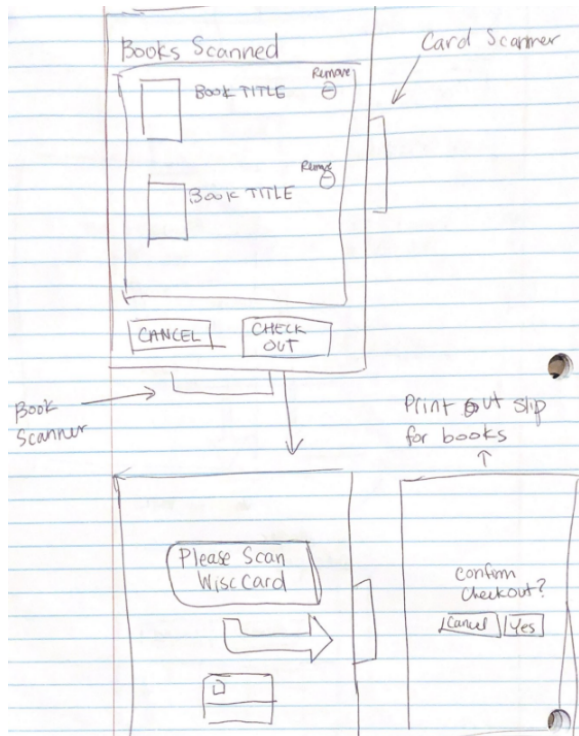 Books Scanned
Card Scanner
Remove
BOOK TITLE
Remove
BOOK TITLE
CANCEL
CHECK
OUT
Book
Scanner
Print out slip
for books
Please Scan
WiscCard
Confirm
Checkout?
Cancel
Yes